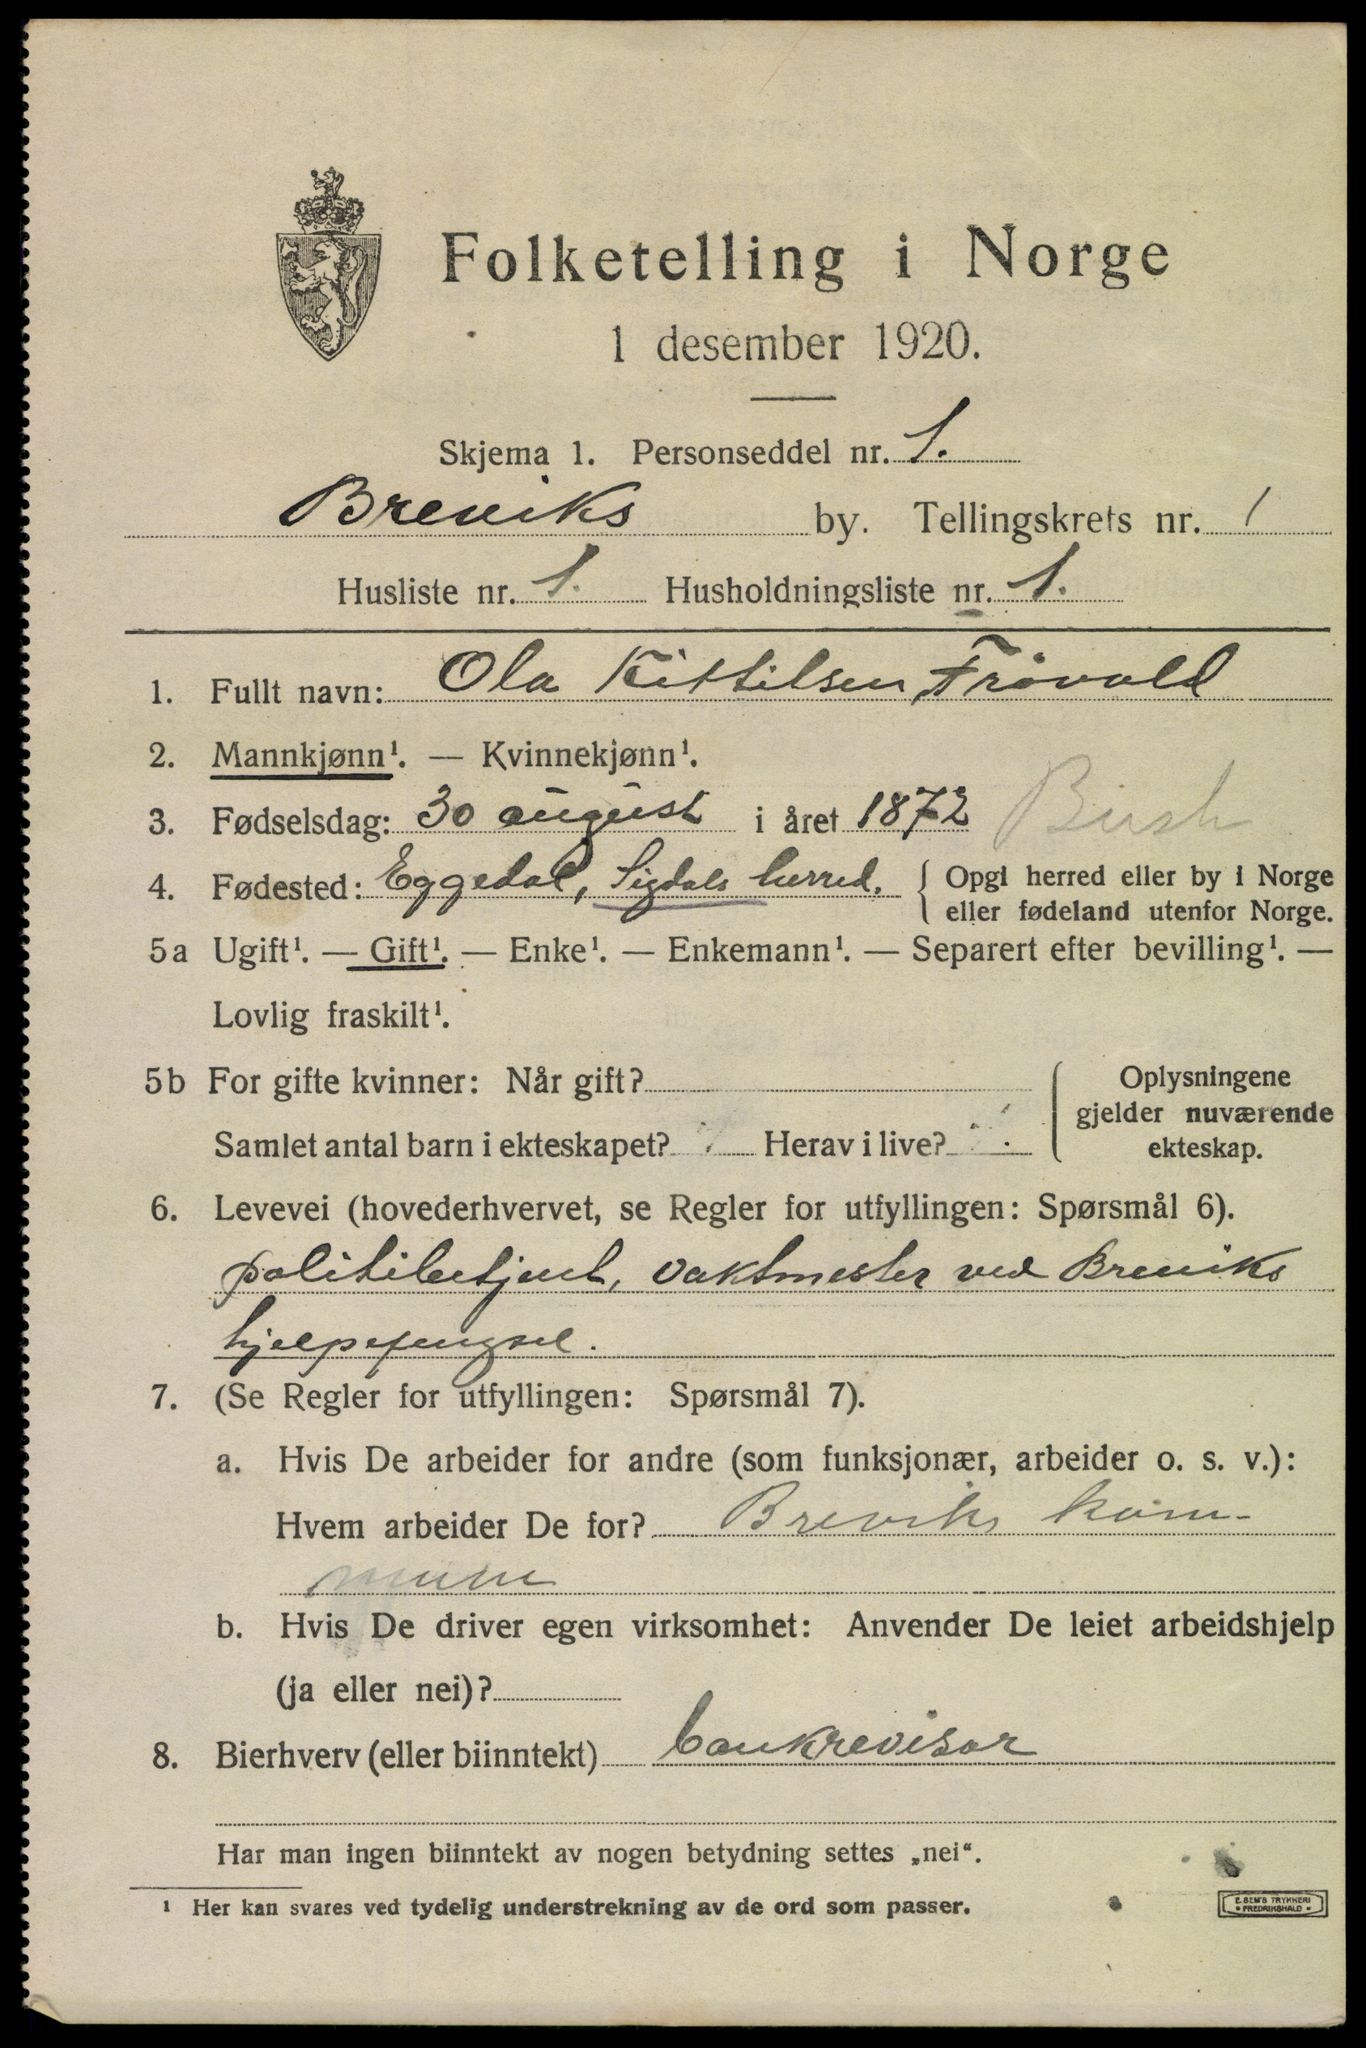 Folketelling i Norge
1 desember 1920.
Skjema 1. Personseddel nr. 1.
Breviks by. Tellingskrets nr. 1
Husliste nr. 1. Husholdningsliste nr. 1.
1. Fullt navn: Ola Kittilsen Frøvold
2. Mannkjønn¹. — Kvinnekjønn¹.
3. Fødselsdag: 30 august i året 1872 Busk
4. Fødested: Eggedal, Sigdals herred. { Opgi herred eller by i Norge
eller fødeland utenfor Norge.
5a Ugift¹. — Gift¹. — Enke¹. — Enkemann¹. — Separert efter bevilling¹. —
Lovlig fraskilt¹.
5b For gifte kvinner: Når gift?
Samlet antal barn i ekteskapet? Herav i live?
Oplysningene
gjelder nuværende
ekteskap.
6. Levevei (hovederhvervet, se Regler for utfyllingen: Spørsmål 6).
politibetjent, vaktmester ved Breviks
hjelpefengsel.
7. (Se Regler for utfyllingen: Spørsmål 7).
a. Hvis De arbeider for andre (som funksjonær, arbeider o. s. v.):
Hvem arbeider De for? Breviks kom-
mune
b. Hvis De driver egen virksomhet: Anvender De leiet arbeidshjelp
(ja eller nei)?
8. Bierhverv (eller biinntekt) bankrevisor
Har man ingen biinntekt av nogen betydning settes „nei“.
¹ Her kan svares ved tydelig understrekning av de ord som passer.
E. SEM'S TRYKKERI
FREDRIKSHALD